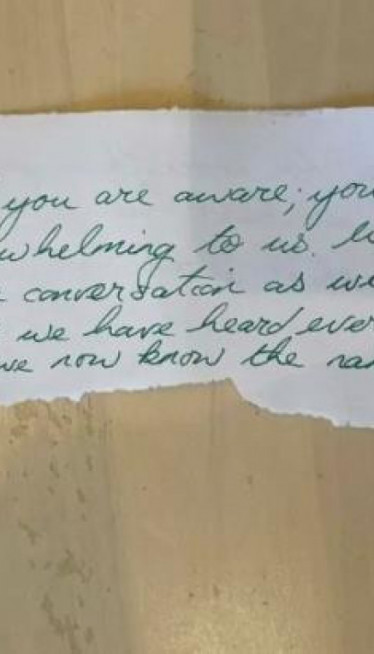 you are aware; you
whelming to us.
conversation as we
we have heard ever
we now know the nam